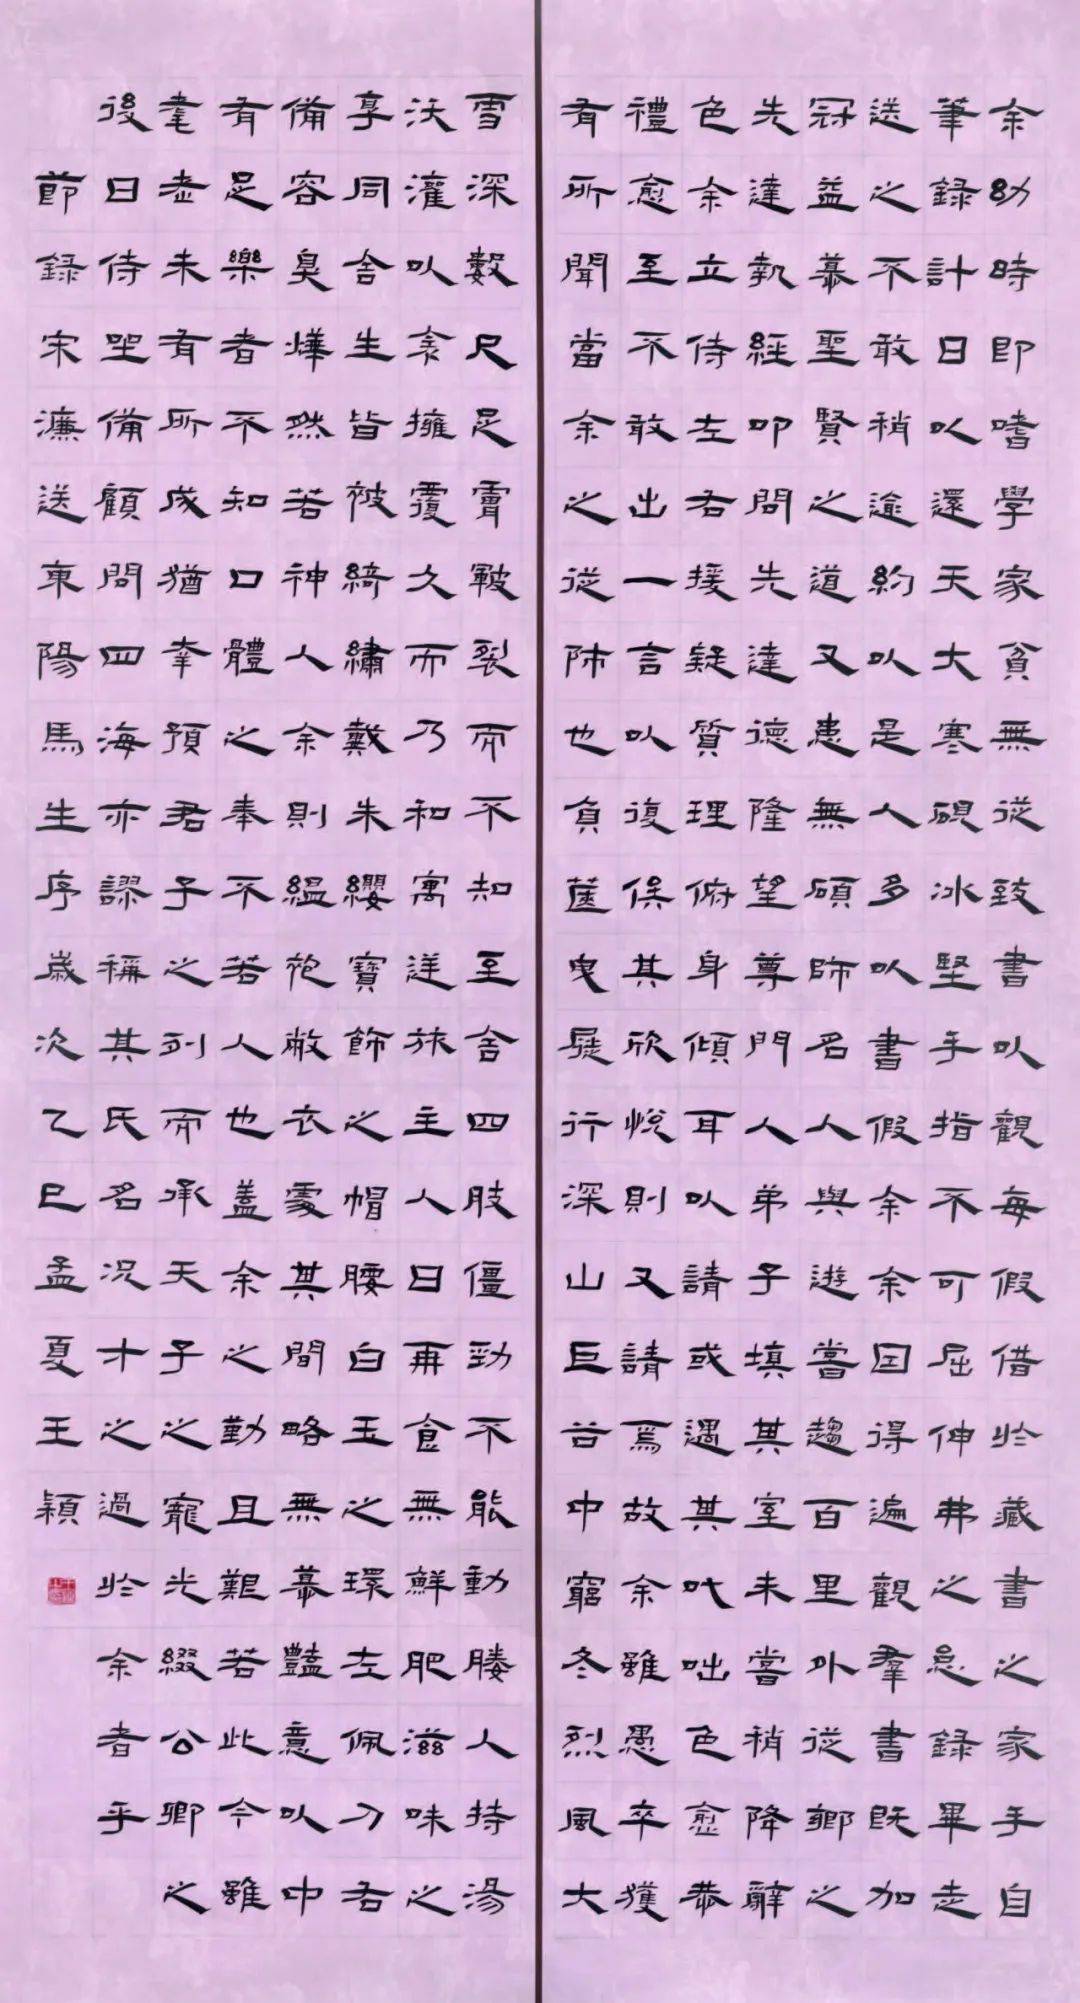 余幼時即嗜學家貧無從致書以觀每假借於藏書之家手自
筆録計日以還天大寒硯冰堅手指不可屈伸弗之怠録畢走
送之不敢稍逾約以是人多以書假余余因得遍觀羣書既加
冠益慕聖賢之道又患無碩師名人與遊嘗趨百里外從鄉之
先達執經叩問先達德隆望尊門人弟子填其室未嘗稍降辭
色余立侍左右援疑質理俯身傾耳以請或遇其叱咄色愈恭
禮愈至不敢出一言以復俟其欣悅則又請焉故余雖愚卒獲
有所聞當余之從師也負篋曳屣行深山巨谷中窮冬烈風大
雪深數尺足膚皸裂而不知至舍四肢僵勁不能動媵人持湯
沃灌以衾擁覆久而乃和寓逆旅主人日再食無鮮肥滋味之
享同舍生皆被綺繡戴朱纓寶飾之帽腰白玉之環左佩刀右
備容臭燁然若神人余則縕袍敝衣處其間略無慕豔意以中
有足樂者不知口體之奉不若人也蓋余之勤且艱若此今雖
耄老未有所成猶幸預君子之列而承天子之寵光綴公卿之
後日侍坐備顧問四海亦謬稱其氏名況才之過於余者乎
節録宋濂送東陽馬生序歲次乙巳孟夏王穎